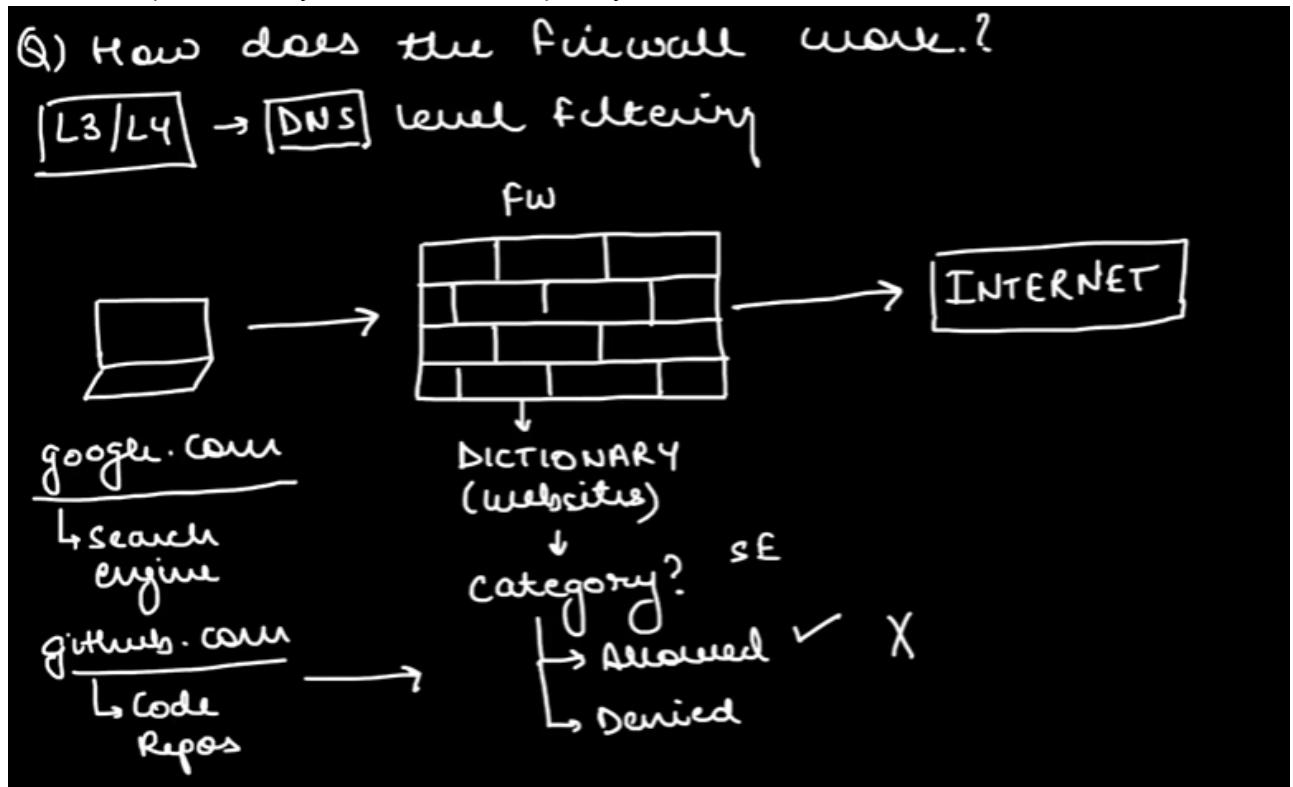 Q) How does the firewall work.?
L3/L4 → DNS level filtering
FW
INTERNET
google.com
↳ search
engine
github.com
↳ Code
Repos
DICTIONARY
(websites)
category? SE
→ Allowed ✓ X
↳ Denied